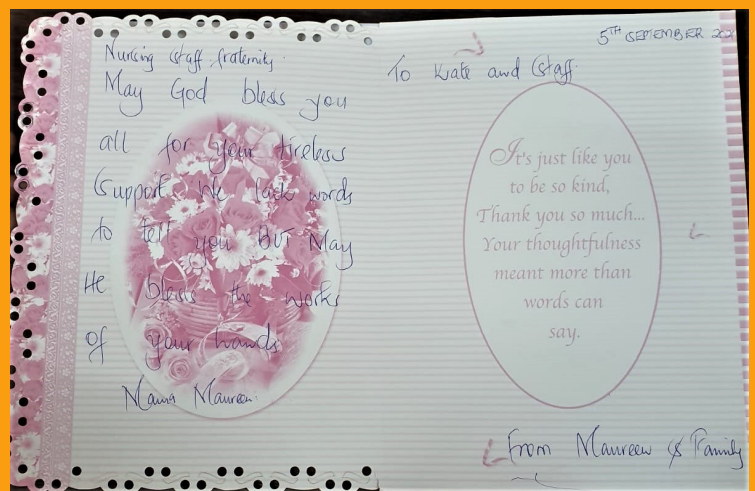 Nursing staff fraternity.
May God bless you
all for your tireless
Support. We lack words
to tell you BUT May
He bless the works
of your hands
Mama Maureen.
5TH SEPTEMBER
To Kate and Staff.
It's just like you
to be so kind,
Thank you so much...
Your thoughtfulness
meant more than
words can
say.
From Maureen & Family